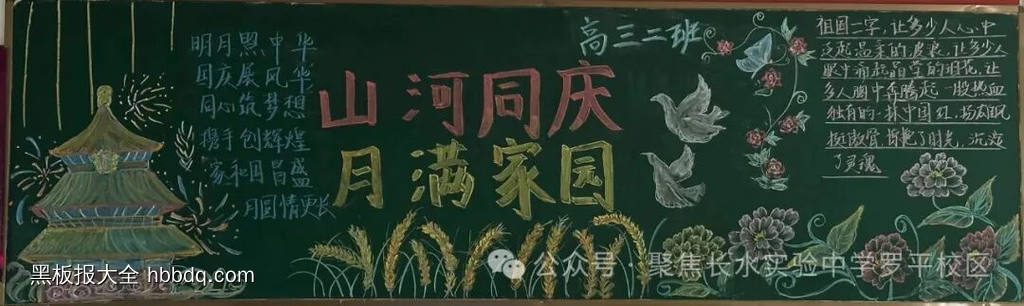 明月照中华
国庆展风华
同心筑梦想
携手创辉煌
家和国昌盛
月圆情更长
山河同庆
月满家园
高三二班
祖国二字,让多少人心中
泛起思
让多少人
眼中
让
多少人胸中奔腾起一股热血
独有的一抹中国红,
了灵魂
黑板报大全 hbbdq.com
公众号·聚焦长水实验中学罗平校区